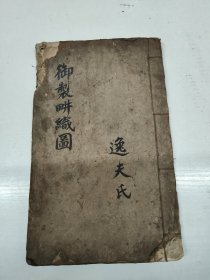 御製畊織圖
逸夫氏